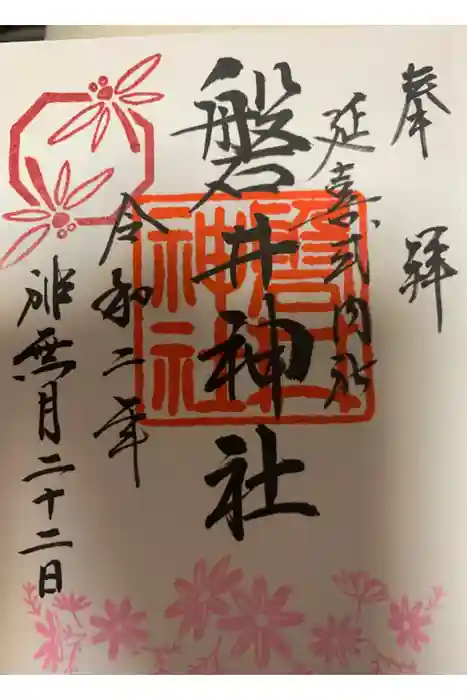 奉拝
延喜式内社
磐井神社
磐井神社
令和二年
神無月二十二日